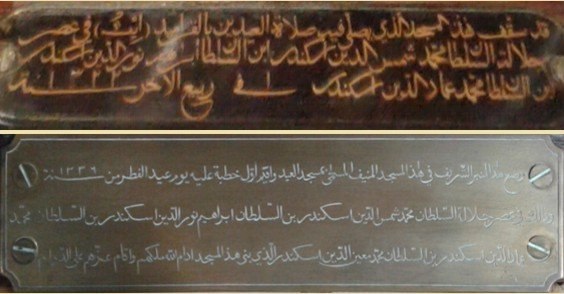 قد سقف هذا المسجد الذي يصلي فيه صلاة العيدين بالقراميد في عصر
جلالة السلطان محمد شمس الدين اسكندر ابن السلطان ابراهيم نور الدين اسكندر
ابن السلطان محمد عماد الدين اسكندر في ربيع الآخر سنة
وضع هذا المنبر الشريف في هذا المسجد المنيف المسمى بمسجد العيد واقيم اول خطبة عليه يوم عيد الفطر من سنة ١٣٣٦
وذلك في عصر جلالة السلطان محمد شمس الدين اسكندر بن السلطان ابراهيم نور الدين اسكندر بن السلطان محمد
عماد الدين اسكندر بن السلطان محمد معين الدين اسكندر الذي بنى هذا المسجد ادام الله ملكهم واقام عزهم على الدوام